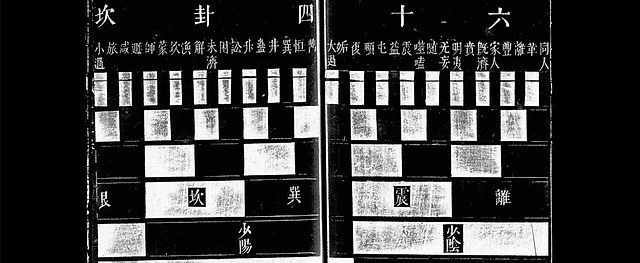 六十四卦次
同人 革 離 豐 家人 既濟 賁 明夷 无妄 隨 噬嗑 震 益 屯 頤 復 姤 大過 鼎 恒 巽 井 蠱 升 訟 困 未濟 解 渙 坎 蒙 師 遯 咸 旅 小過
離 震 巽 坎 艮
少陰 少陽